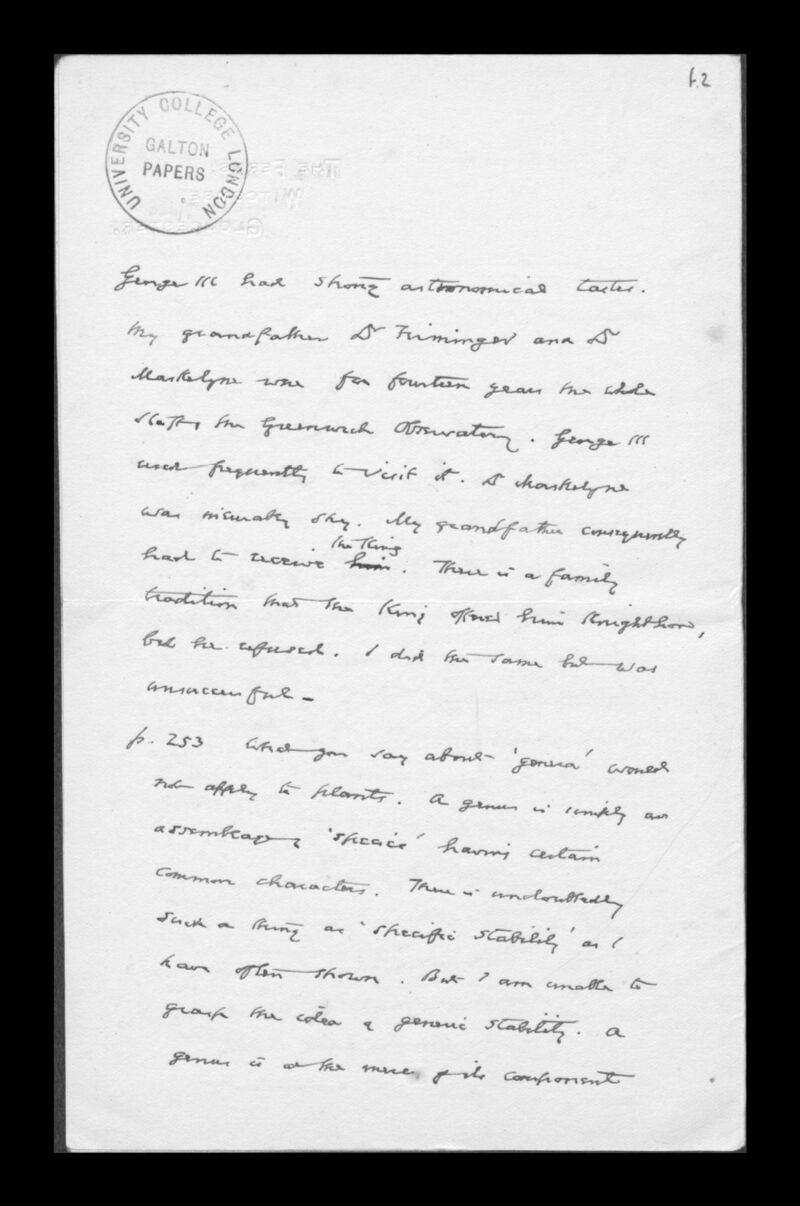 f.2
UNIVERSITY COLLEGE LONDON
GALTON
PAPERS
THE FERNS
WITCOMBE
GLOUCESTER.
George III had strong astronomical tastes.
My grandfather Dr Firminger and Dr
Maskelyne were for fourteen years the whole
staff of the Greenwich Observatory. George III
used frequently to visit it. Dr Maskelyne
was miserably shy. My grandfather consequently
the King
had to receive him. There is a family
tradition that the King offered him Knighthood,
but he refused. I did the same but was
unsuccessful –
p. 253 What you say about 'genera' would
not apply to plants. A genus is simply an
assemblage of 'species' having certain
common characters. There is undoubtedly
such a thing as 'specific stability' as I
have often shown. But I am unable to
grasp the idea of generic stability. A
genus is at the mercy of its component